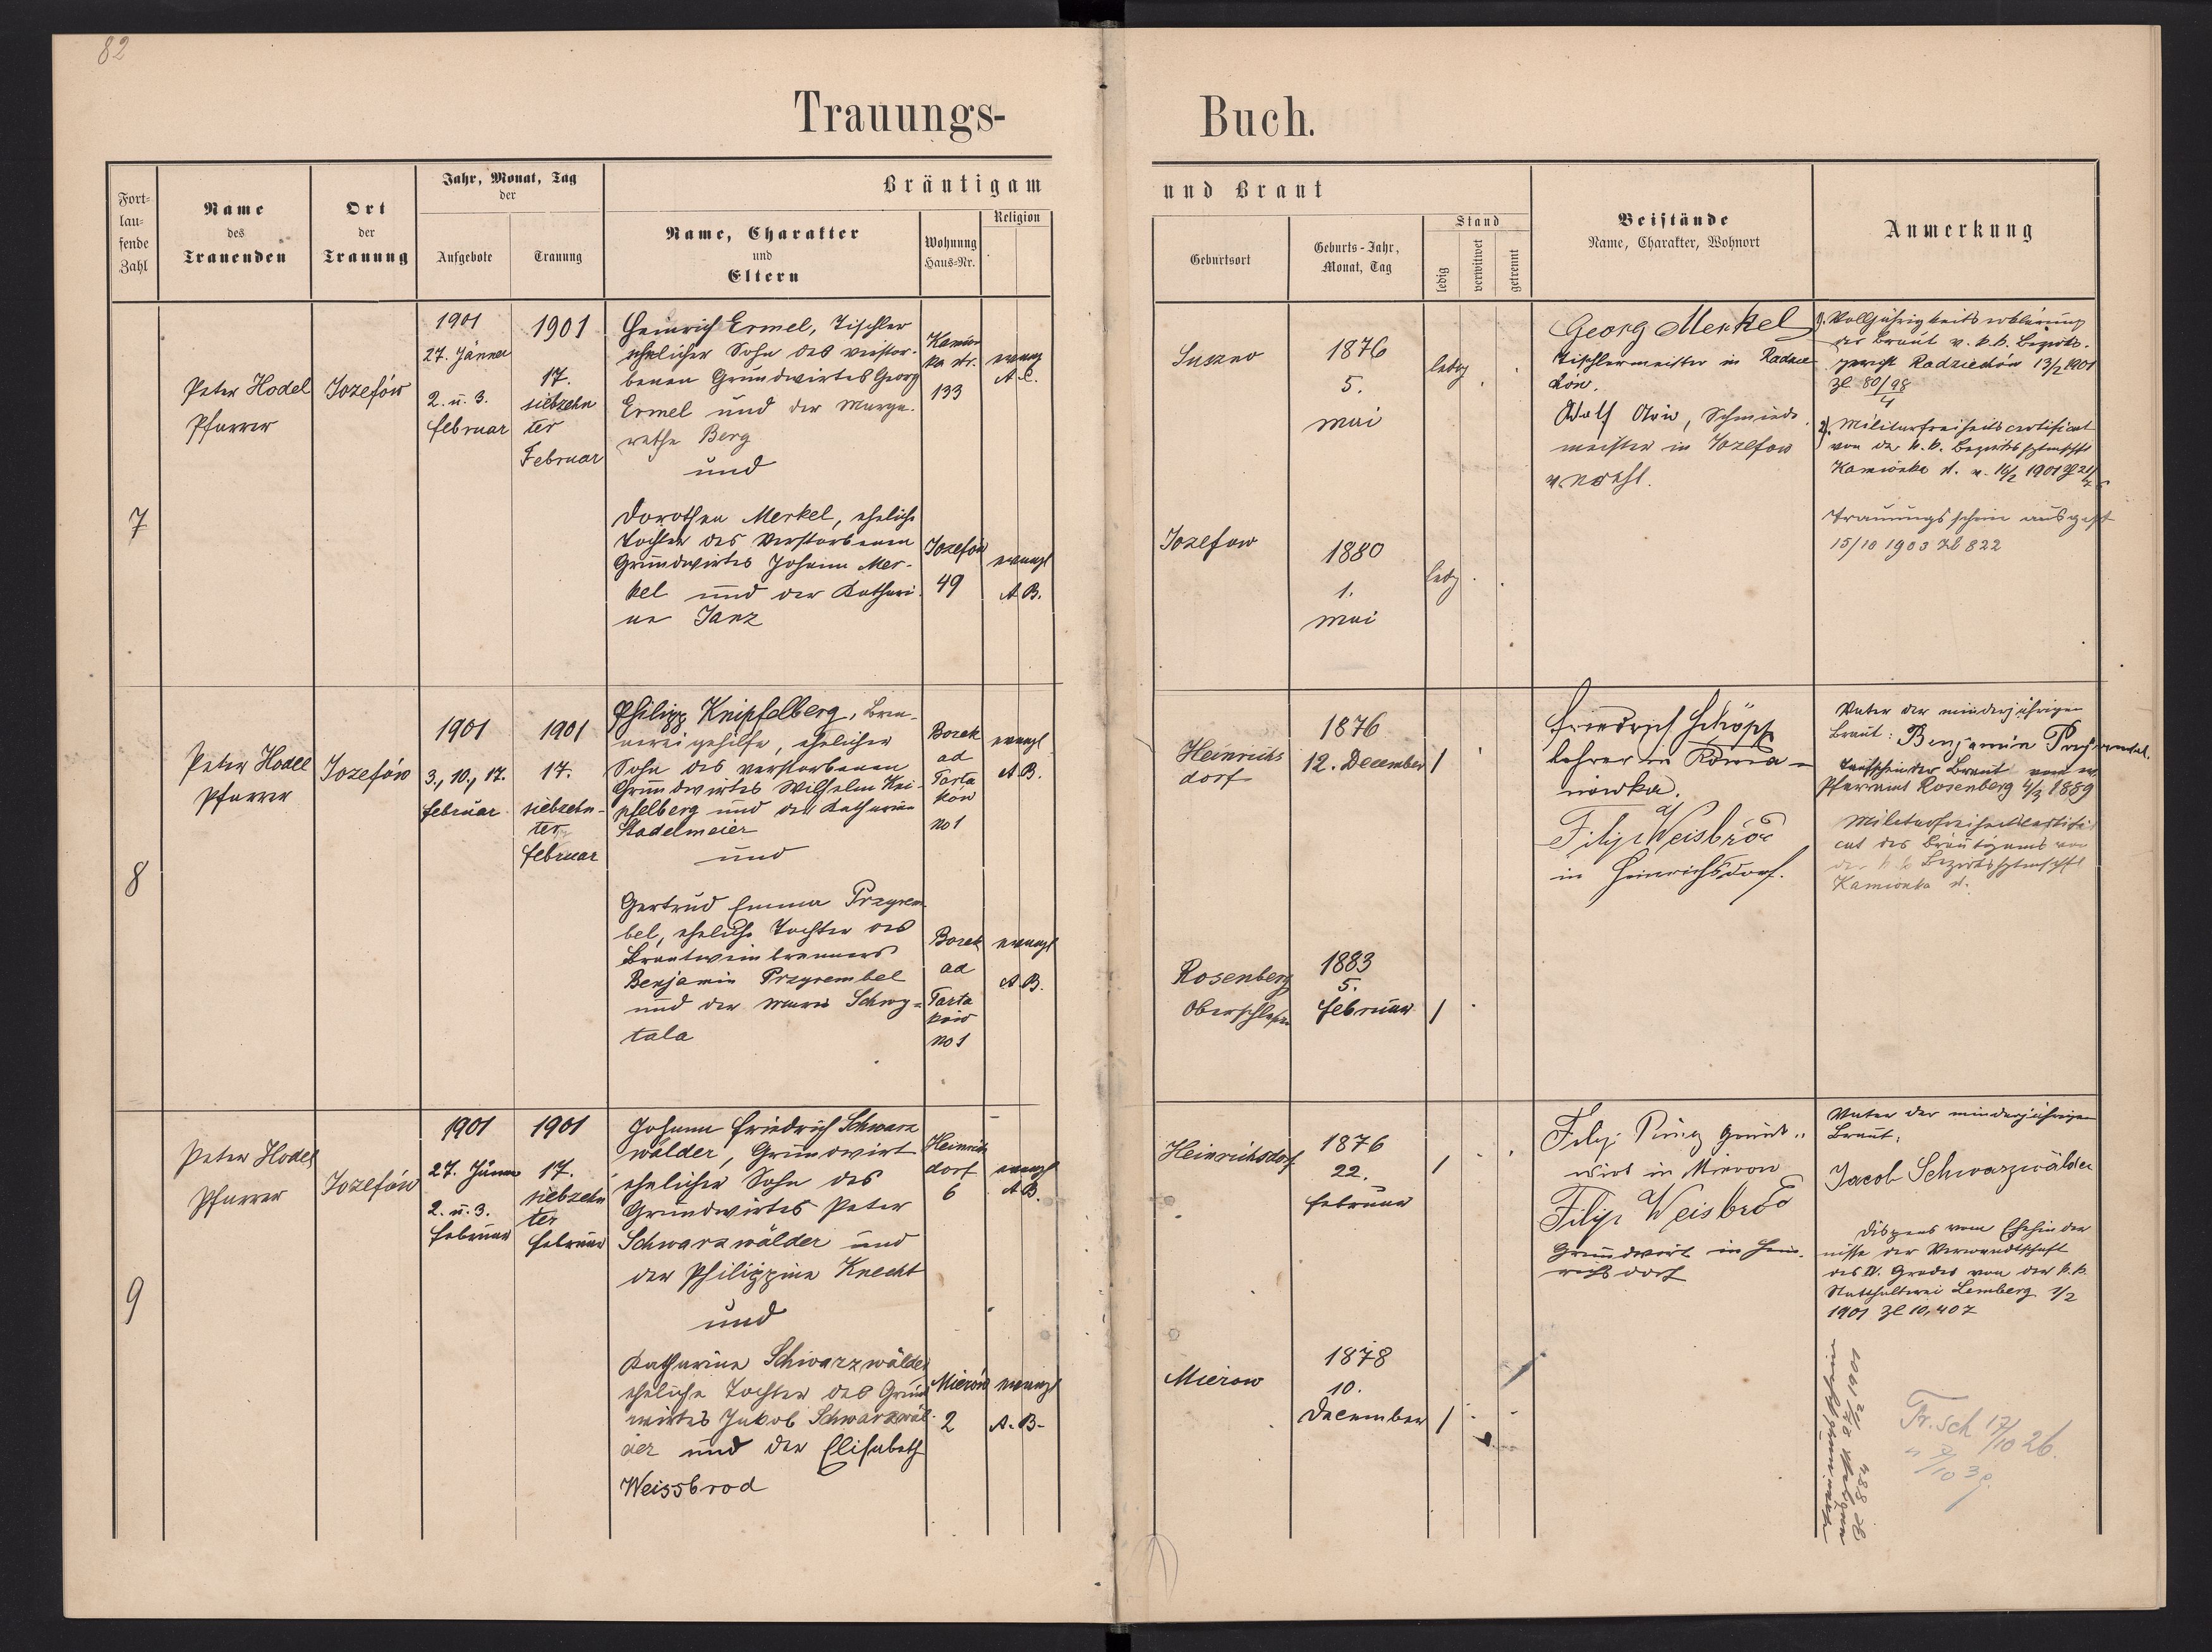 82
Trauungs-
Buch.
Fort-
lau-
fende
Zahl
Name
des
Trauenden
Ort
der
Trauung
Jahr, Monat, Tag
der
Aufgebote
Trauung
Bräutigam
Name, Charakter
und
Eltern
Wohnung
Haus-Nr.
Religion
und Braut
Geburtsort
Geburts-Jahr,
Monat, Tag
Stand
ledig
verwitwet
getrennt
Beistände
Name, Charakter, Wohnort
Anmerkung
7
Peter Hodel
Pfarrer
Jozefów
1901
27. Jänner
2. u. 3.
Februar
1901
17.
siebzehn
ter
Februar
Heinrich Ermel, Tischler
ehelicher Sohn des verstor-
benen Grundwirtes Georg
Ermel und der Marga-
rethe Berg
und
Dorothea Merkel, eheliche
Tochter des verstorbenen
Grundwirtes Johann Mer-
kel und der Kathari-
na Janz
Kamion
ka str.
133
evang
Jozefów
49
evangl
A. B.
Suszno
1876
5.
Mai
ledig
Jozefow
1880
1.
Mai
ledig
Georg Merkel
Tischlermeister in Radzie
chów.
Adolf, Schmiede
meister in Jozefow
1). Volljährigkeitserklärung
der Braut v. k. k. Bezirks-
gericht Radziechów 13/2 1901
Zl 80/98
4
2). Militärfreiheitscertificat
von der k. k. Bezirkshptmschft
Kamionka st. v. 16/2 1901
Trauungsschein ausgest
15/10 1903 Zl 822
8
Peter Hodel
Pfarrer
Jozefów
1901
3., 10., 17.
Februar
1901
17.
siebzehn-
ter
Februar
Philipp Knipfelberg, Bren-
nereigehilfe, ehelicher
Sohn des verstorbenen
Grundwirtes Wilhelm Kni-
pfelberg und der Katharina
Stadelmeier
und
Gertrud Emma Przyrem
bel, eheliche Tochter des
Brantweinbrenners
Benjamin Przyrembel
und der Maria Schwy-
tala
Borek
ad
Tarta
ków
No 1
evangl
A B.
Borek
ad
Tarta
ków
No 1
evangl
A B.
Heinrichs
dorf
1876
12. December
1
Rosenberg
Oberschlesien
1883
5.
Februar
1
Friedrich Schöpp
Lehrer in Roma-
nówka.
Filip Weisbrod
in Heinrichsdorf.
Vater der minderjährigen
Braut: Benjamin Przyrembel.
Taufschein der Braut vom ev.
Pfarramt Rosenberg 4/3 1889
Militärfreiheitscertifi
cat des Bräutigams von
der k. k. Bezirkshptmschft
Kamionka st.
9
Peter Hodel
Pfarrer
Jozefów
1901
27. Jänner
2. u. 3.
Februar
1901
17.
siebzehn
ter
Februar
Johann Friedrich Schwarz
wälder, Grundwirt
ehelicher Sohn des
Grundwirtes Peter
Schwarzwälder und
der Philippine Knecht
und
Katharina Schwarzwälder
eheliche Tochter des Grund
wirtes Jakob Schwarzwäl-
der und der Elisabeth
Weissbrod
Heinrich
dorf
6
evangl
A B.
Mierów
2
evangl
A. B.
Heinrichsdorf
1876
22.
Februar
1
Mierow
1878
10.
December
1
Filip Grund-
wirt in Mierow
Filip Weisbrod
Grundwirt in Hein-
richsdorf
Vater der minderjährigen
Braut:
Jacob Schwarzwälder
Dispens vom Ehehinder
nisse der Verwandtschaft
des IV. Grades von der k. k.
Statthalterei Lemberg 1/2
1901 Zl 10,407
Tr. sch 17/10 26.